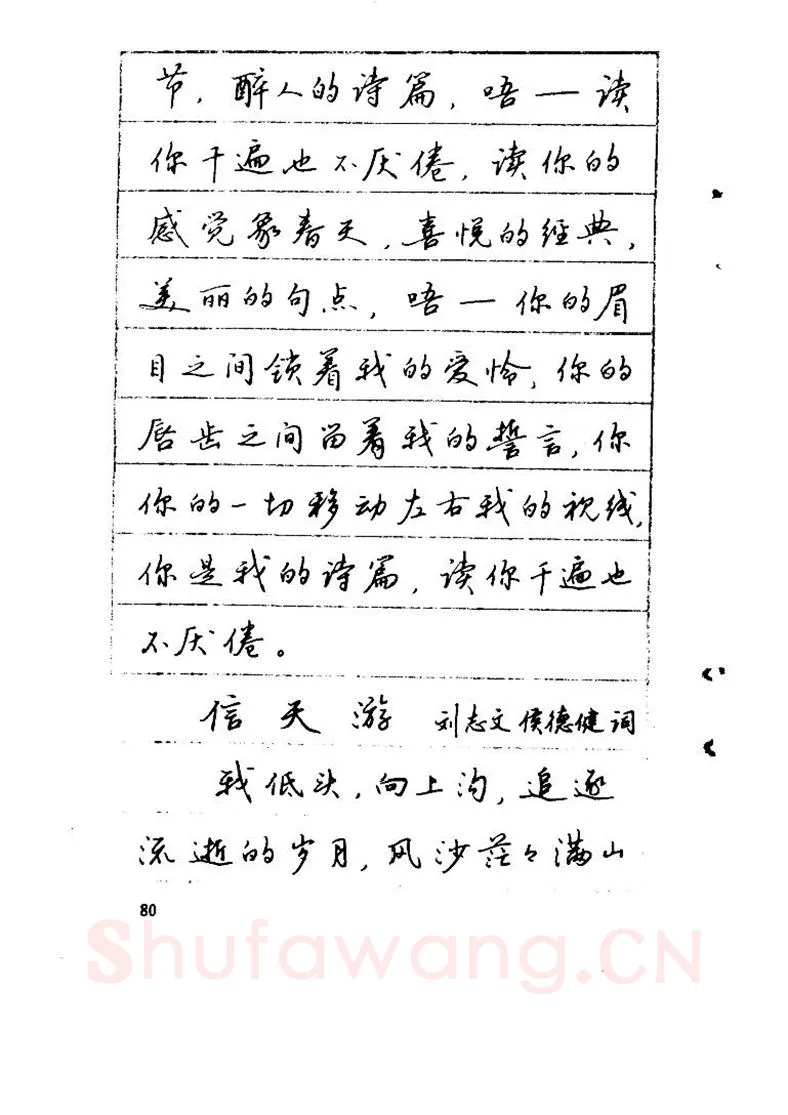 节，醉人的诗篇，唔一读
你千遍也不厌倦，读你的
感觉象春天，喜悦的经典，
美丽的句点，唔一你的眉
目之间锁着我的爱怜，你的
唇齿之间留着我的誓言，你
你的一切移动左右我的视线，
你是我的诗篇，读你千遍也
不厌倦。
信天游 刘志文侯德健词
我低头，向上沟，追逐
流逝的岁月，风沙茫々满山
80
Shufawang.CN